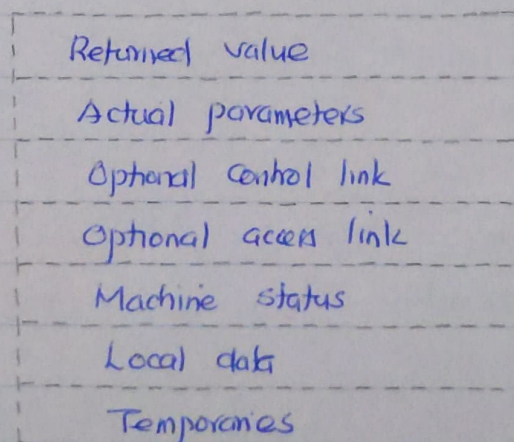 Returned value
Actual parameters
Optional control link
Optional access link
Machine status
Local data
Temporaries